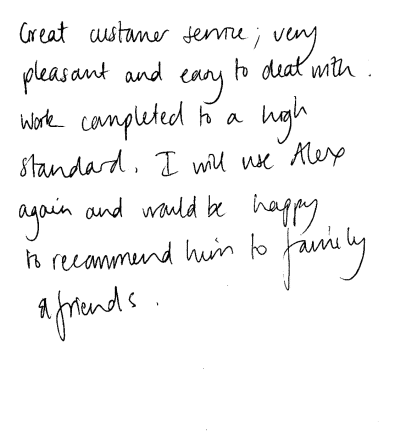 Great customer service; very
pleasant and easy to deal with.
Work completed to a high
standard. I will use Alex
again and would be happy
to recommend him to family
& friends.